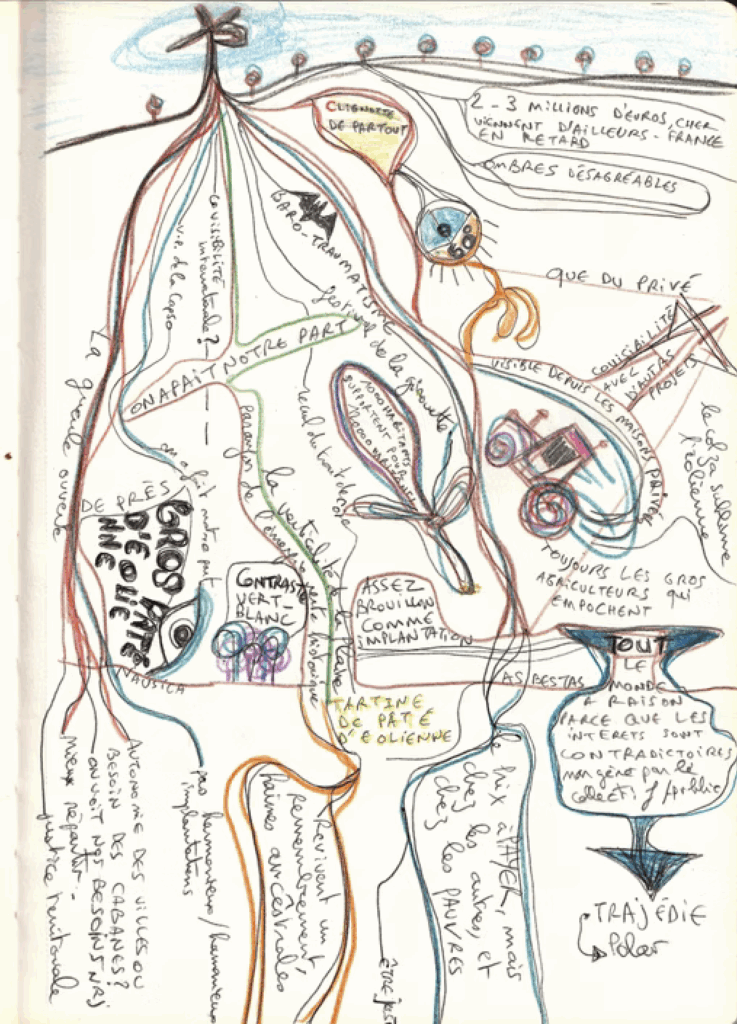 CLIGNOTE
DE PARTOUT
2 - 3 MILLIONS D'EUROS, CHER
VIENNENT D'AILLEURS - FRANCE
EN RETARD
OMBRES DÉSAGRÉABLES
COVISIBILITÉ
internationale?
V.P. de la Capso
BARO-TRAUMATISME
festival de la girouette
QUE DU PRIVÉ
COVISIBILITÉ
AVEC
D'AUTRES
PROJETS
VISIBLE DEPUIS LES MAISONS PRIVÉES
le colza sublime
l'éolienne
La gueule ouverte
ON A FAIT NOTRE PART
on a fait notre part
1000 HABITANTS
SUPPORTENT POUR
recul du trait de côte
la verticalité de la plaie
parangon de l'émergence
DE PRÈS
GROS PÂTÉ
D'ÉOLIE
NNE
CONTRASTE
VERT-
BLANC
ASSEZ
BROUILLON
COMME
IMPLANTATION
TOUJOURS LES GROS
AGRICULTEURS QUI
EMPOCHENT
NAUSICA
AS BESTAS
TARTINE
DE PÂTÉ
D'ÉOLIENNE
TOUT
LE
MONDE
A RAISON
PARCE QUE LES
INTERETS SONT
CONTRADICTOIRES
mangène par le
collectif/public
TRAJÉDIE
Polar
AUTONOMIE DES VILLES OU
BESOIN DES CABANES?
ON VOIT NOS BESOINS NRJ
Mieux répartir -
justice territoriale
pas harmonieux/harmonieux
implantations
Revivent un
remembrement,
haines ancestrales
le prix à PAYER, mais
chez les autres, et
chez les PAUVRES